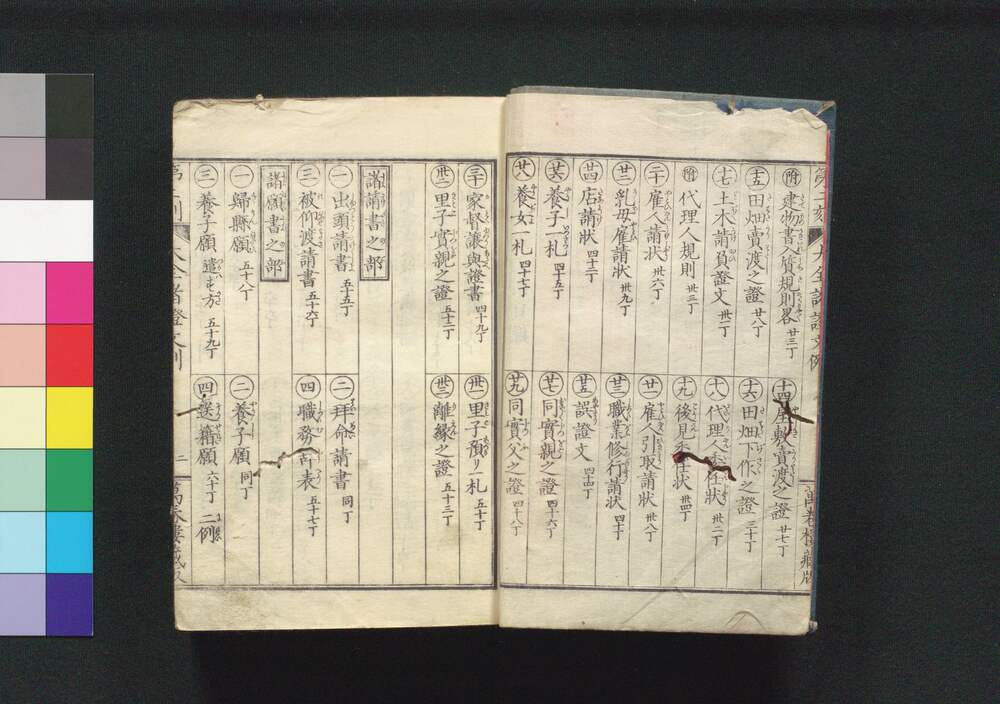 附 建物書入質規則畧 廿三丁
十四 屋敷賣渡之證 廿七丁
十五 田畑賣渡之證 廿八丁
十六 田畑下作之證 三十丁
十七 土木請負證文 卅一丁
十八 代理人委任状 卅二丁
附 代理人規則 卅三丁
十九 後見委任状 卅四丁
二十 雇人請状 卅六丁
廿一 雇人引取請状 卅八丁
廿二 乳母雇請状 卅九丁
廿三 職業修行請状 四十丁
廿四 店請状 四十二丁
廿五 誤證文 四十四丁
廿六 養子一札 四十五丁
廿七 同實親之證 四十六丁
廿八 養女一札 四十七丁
廿九 同實父之證 四十八丁
三十 家督譲與證書 四十九丁
卅一 里子預リ札 五十丁
卅二 里子實親之證 五十二丁
卅三 離縁之證 五十三丁
諸請書之部
一 出頭請書 五十五丁
二 拜命請書 同丁
三 被仰渡請書 五十六丁
四 職務辞表 五十七丁
諸願書之部
一 歸縣願 五十八丁
二 養子願 同丁
三 養子願 遣シ方 五十九丁
四 送籍願 六十丁 二例